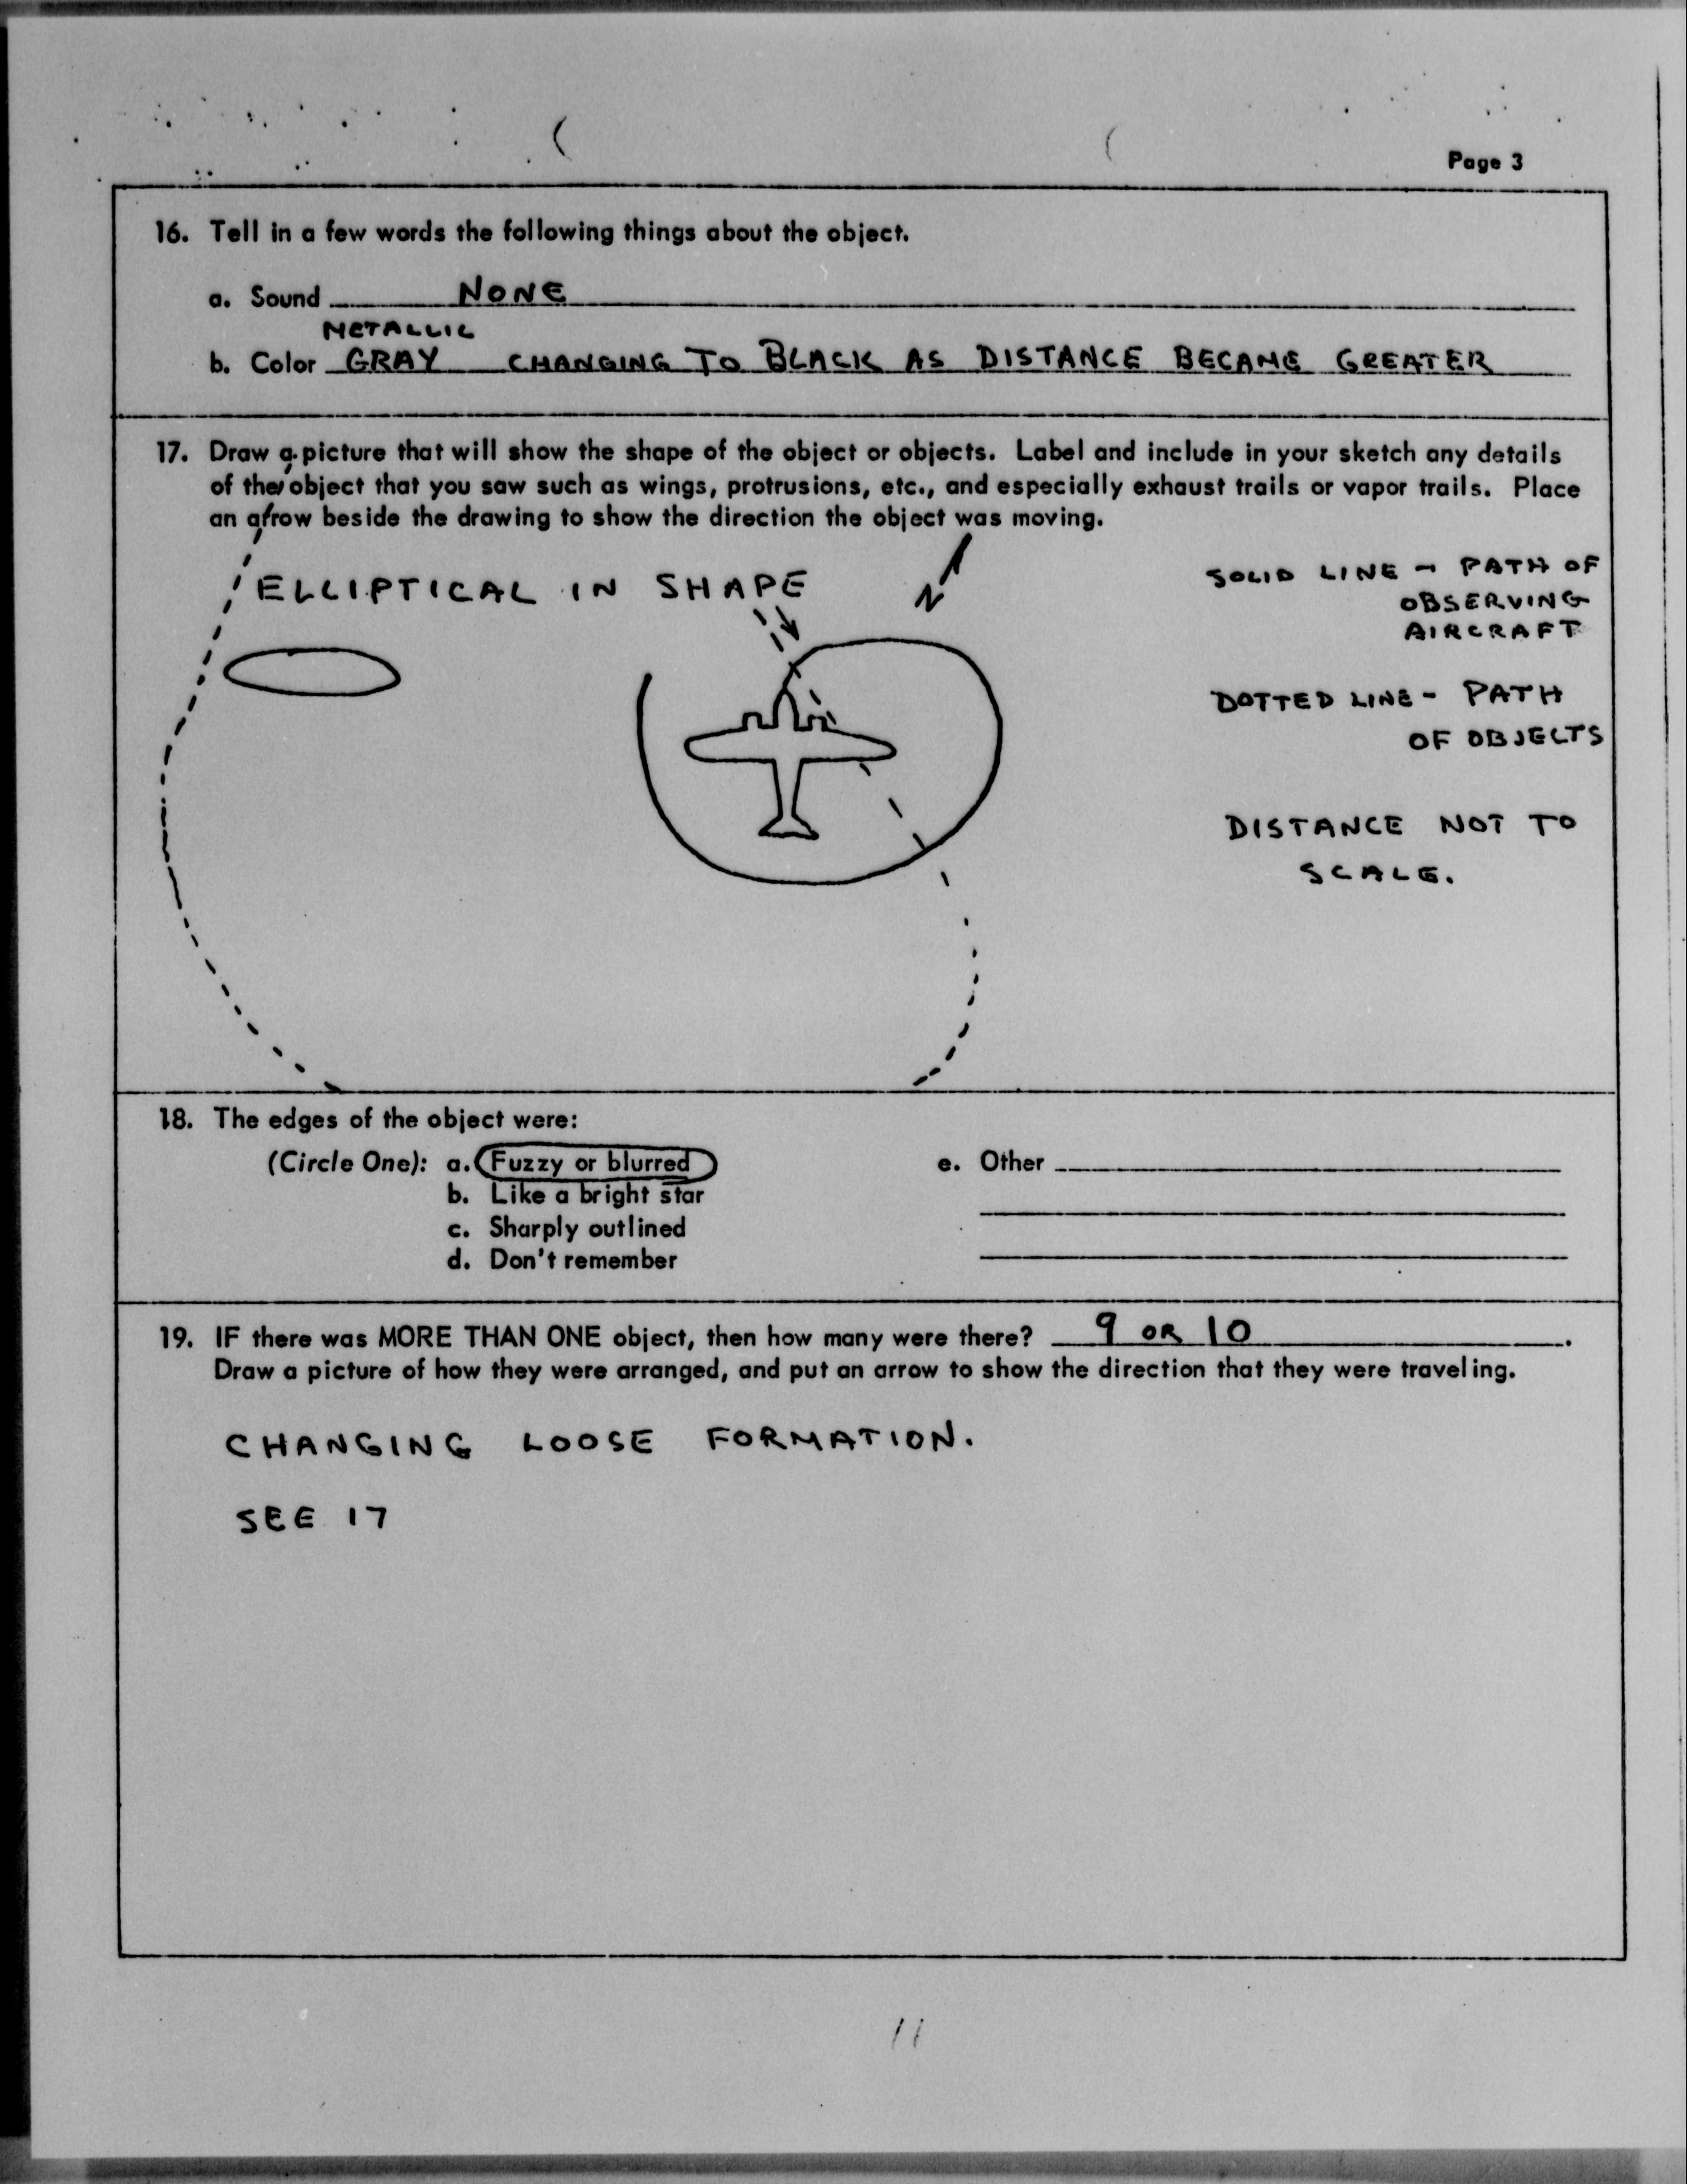 Page 3
16. Tell in a few words the following things about the object.
a. Sound NONE
METALLIC
b. Color GRAY CHANGING TO BLACK AS DISTANCE BECAME GREATER
17. Draw a picture that will show the shape of the object or objects. Label and include in your sketch any details
of the object that you saw such as wings, protrusions, etc., and especially exhaust trails or vapor trails. Place
an arrow beside the drawing to show the direction the object was moving.
ELLIPTICAL IN SHAPE
N
SOLID LINE - PATH OF
OBSERVING
AIRCRAFT
DOTTED LINE - PATH
OF OBJECTS
DISTANCE NOT TO
SCALE.
18. The edges of the object were:
(Circle One): a. Fuzzy or blurred
b. Like a bright star
c. Sharply outlined
d. Don't remember
e. Other
19. IF there was MORE THAN ONE object, then how many were there? 9 OR 10.
Draw a picture of how they were arranged, and put an arrow to show the direction that they were traveling.
CHANGING LOOSE FORMATION.
SEE 17
11